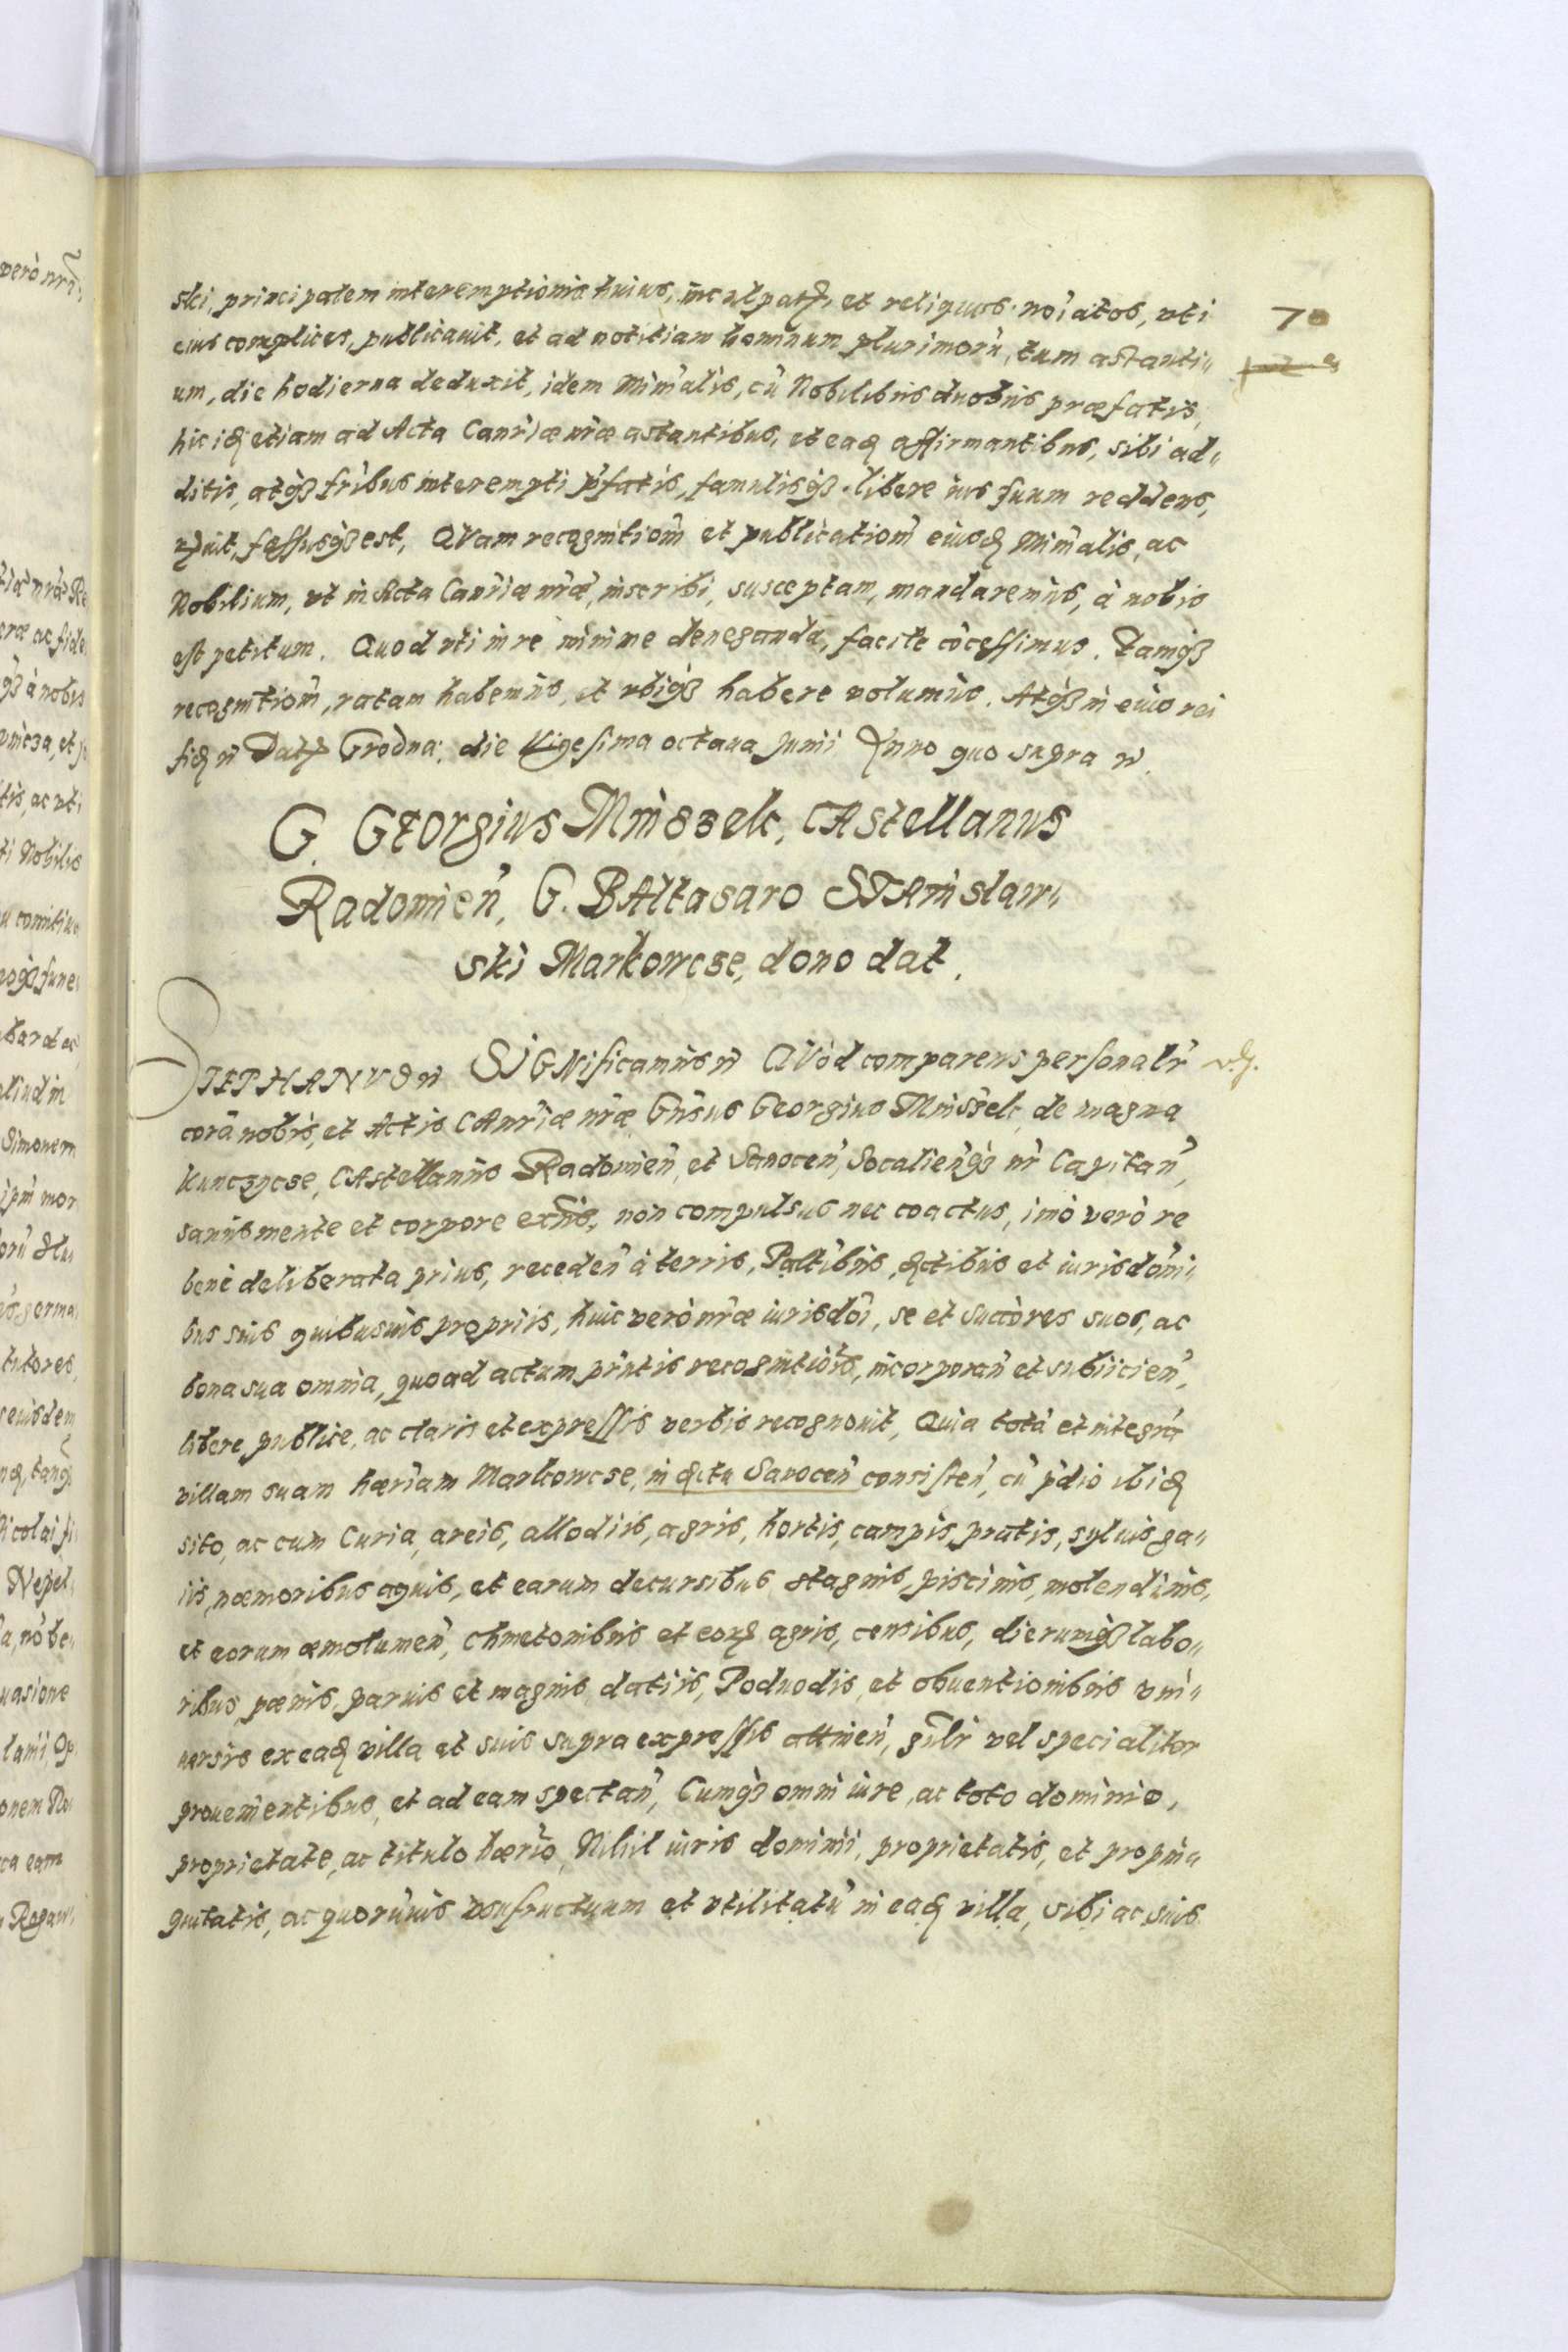 ski, principalem interemptionis huius, inculpatū, et reliquos noı̃atos, vti
eius complices, publicauit, et ad notitiam hominum plurimorū, tum astanti„
um, die hodierna deduxit, idem Minı̃alis, cū Nobilibus duobus præfatis,
hic itidē etiam ad Acta Canr̃iæ nr̃æ astantibus, et eadē affirmantibus, sibi ad„
ditis, atq3 fr̃ibus interempti p̃fatis, famulisq3 libere ius suum reddens,
fassusq3 est, QVam recognitionẽ et publicationẽ eiusdē Minı̃alis, ac
Nobilium, vt in Acta Canr̃iæ nr̃æ, inscribi, susceptam, mandaremus, à nobis
est petitum. Quod vti in re minime deneganda, facile cōcessimus. Eamq3
recognitionẽ, ratam habemus, et vbiq3 habere volumus. Atq3 in eius rei
fidē Datū Grodnæ, die Vigesima octaua Junii Anno quo supra
G. GEOrgius Mniszek, CAstellanus
Radomien̄, G. BAltasaro STAnislaw„
ski Markowcze, dono dat.
STEPHANVS SIGNificamus QVòd comparens personalr̃
corā nobis, et Actis CAnr̃iæ nr̃æ Gñsus Georgius Mniszek, de magna
Kunczycze, CAstellanus Radomien̄, et Sanocen̄, Socalien̄q3 nr̃ Capitan̄,
sanus mente et corpore exñs, non compulsus nec coactus, imò verò re
bene deliberata prius, receden̄ à terris, Paltibus, dictibus et iurisdōni„
bus suis quibusuis propriis, huic verò nr̃æ iurisdōi, se et Succōres suos, ac
bona sua omnia, quoad actum pr̃ntis recognitiōis, incorporan̄ et subiicien̄,
libere, publice, ac claris et expressis verbis recognouit, Quia totā et integrā
villam suam hær̃iam Markowcse, in dictu Sanocen̄ consisten̄, cū p̃dio ibidē
sito, ac cum Curia, areis, allodiis, agris, hortis, campis, pratis, syluis, ga„
iis, næmoribus, aquis, et earum decursibus, stagnis, piscinis, molendinis,
et eorum æmolumen̄, chmetonibus et eorū agris, censibus, dierumq3 labo„
ribus, pænis, paruis et magnis, datiis, Poduodis, et obuentionibus vni„
uersis ex eadē villa et suis supra expressis attinen̄, gñlr̃ vel specialiter
prouenientibus, et ad eam spectan̄, Cumq3 omni iure, ac toto dominio,
proprietate, ac titulo hær̃io, Nihil iuris dominii, proprietatis, et propin„
quitatis, ac quorūuis vsufructuum et vtilitatū in eadē villa, sibi ac suis
70